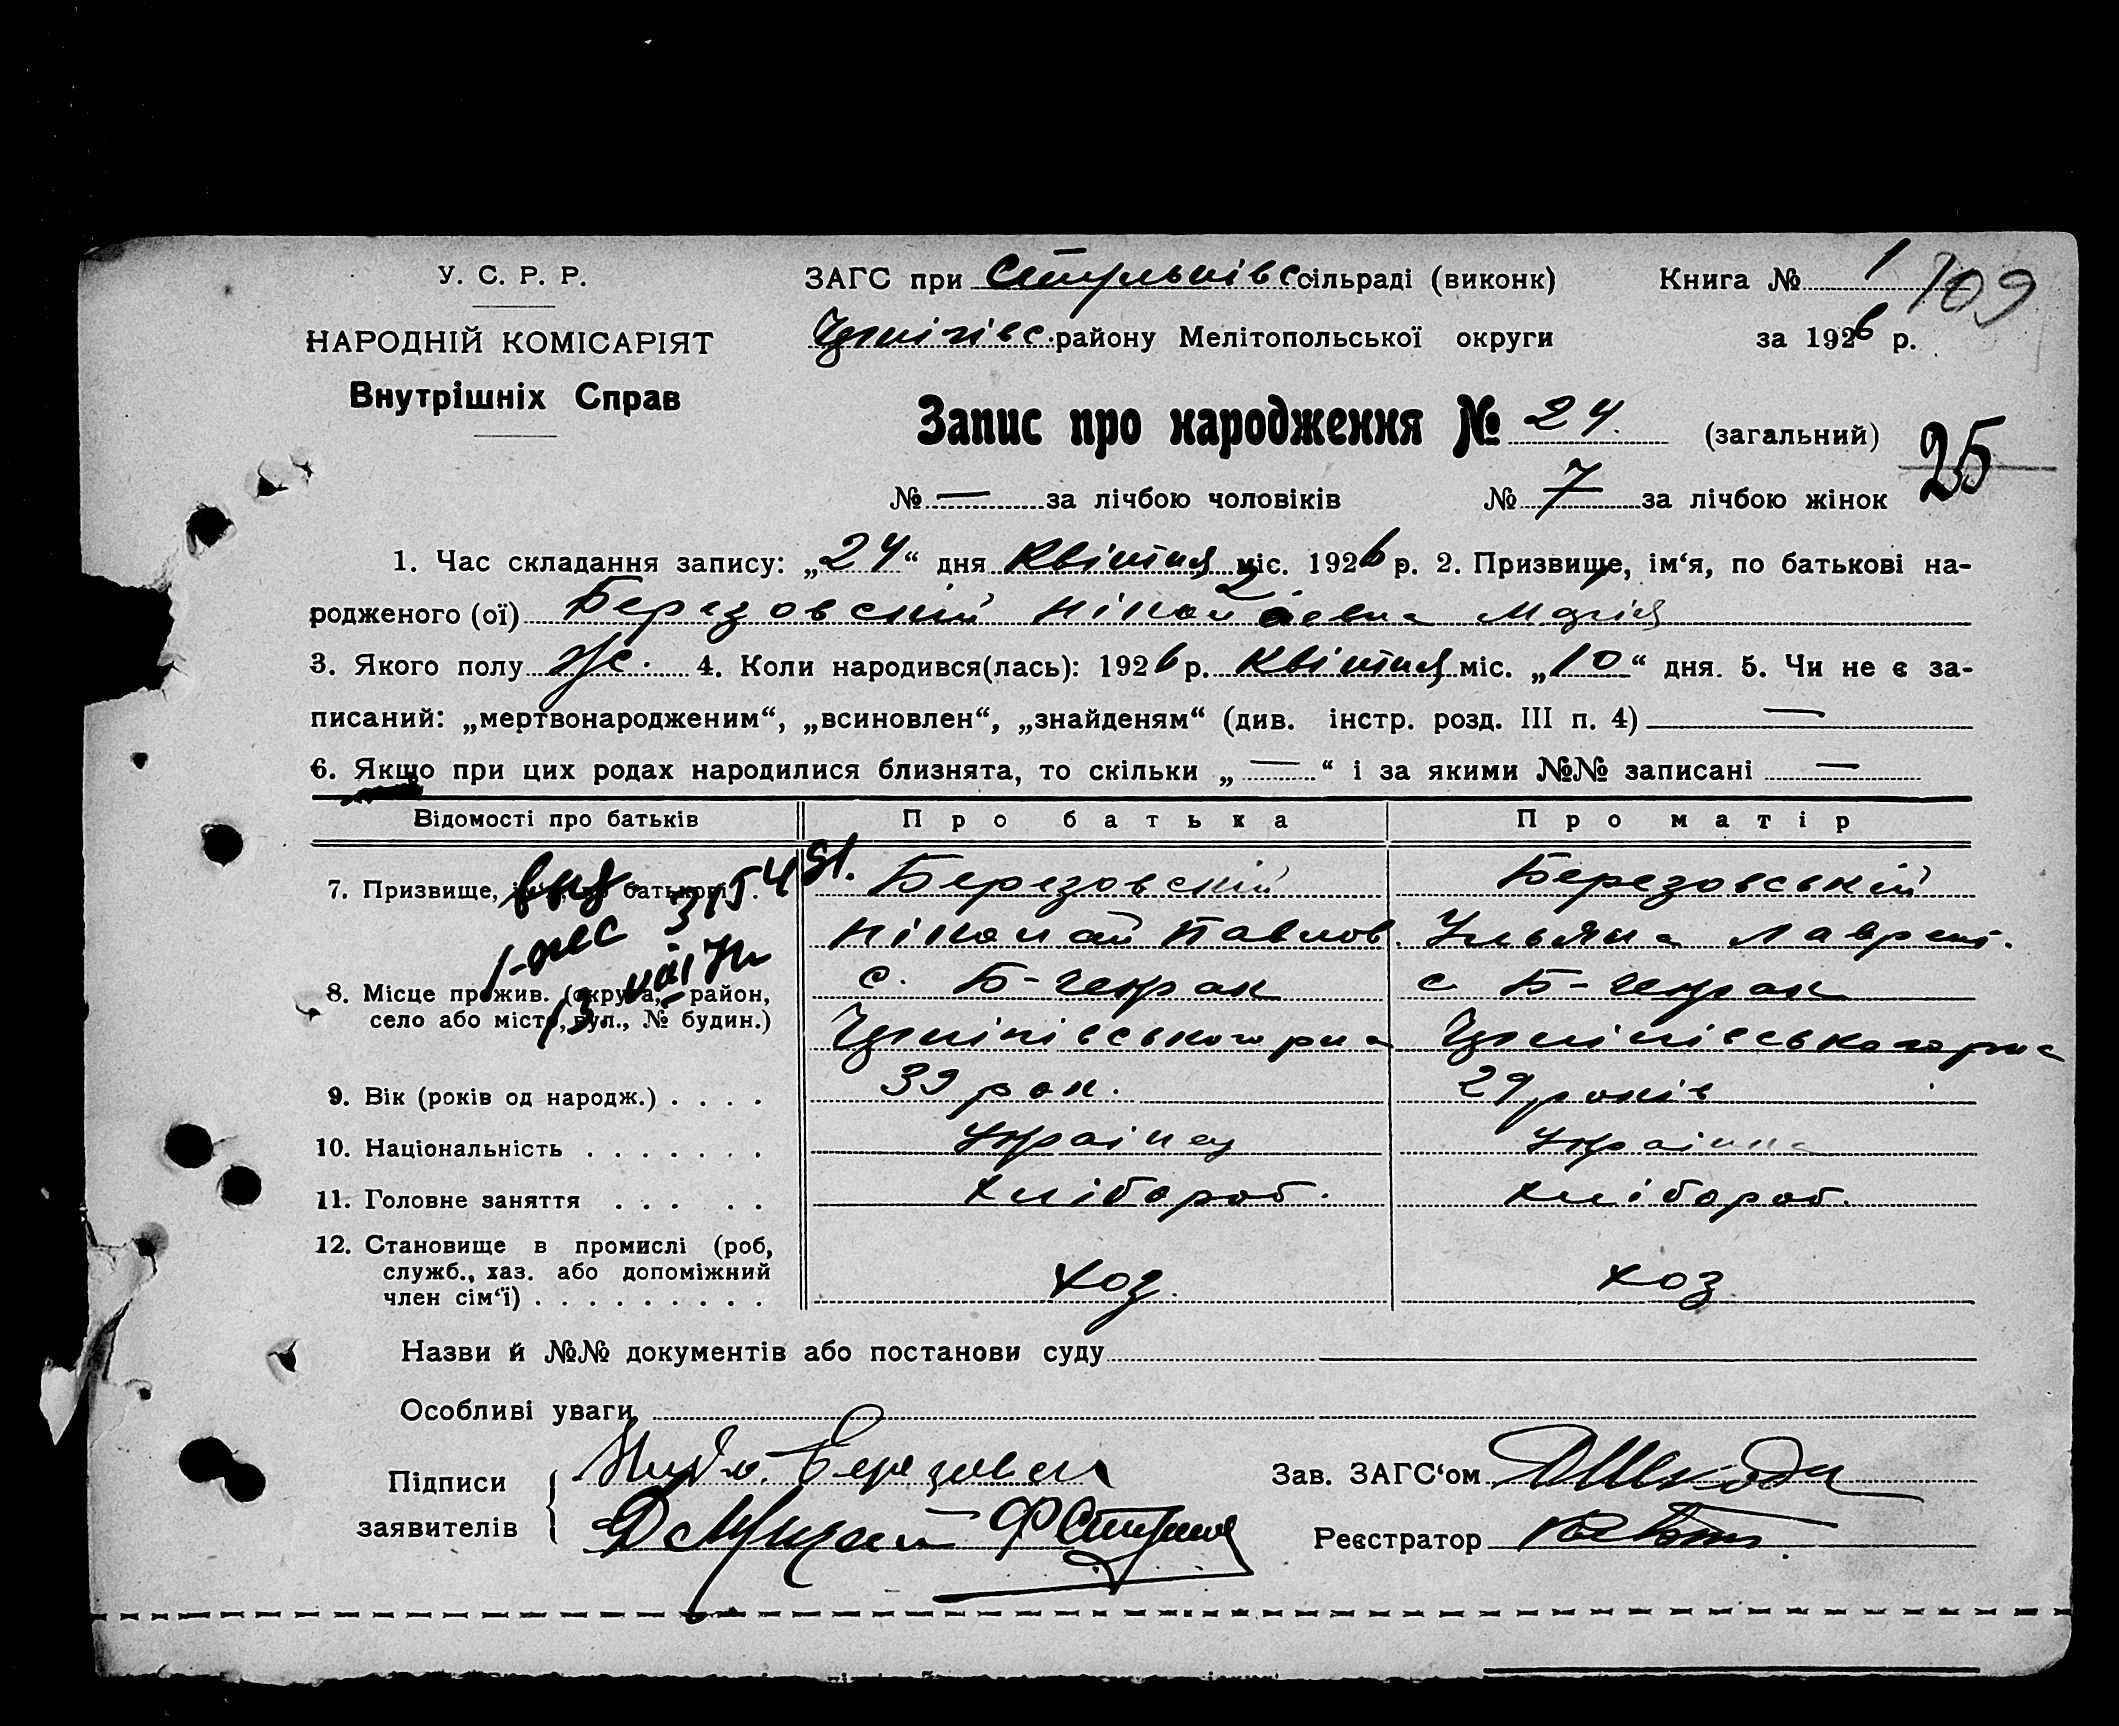 У. С. Р. Р.
НАРОДНІЙ КОМІСАРІЯТ
Внутрішніх Справ
ЗАГС при сільраді (виконк) Книга № 1 109
району Мелітопольської округи за 1926 р.
Запис про народження № 24. (загальний) 25
№ — за лічбою чоловіків № 7 за лічбою жінок
1. Час складання запису: „24“ дня Квітня міс. 1926 р. 2. Призвище, ім‘я, по батькові на-
родженого (ої) Березовскій Марія
3. Якого полу ж. 4. Коли народився(лась): 1926 р. Квітня міс. „10“ дня. 5. Чи не є за-
писаний: „мертвонародженим“, „всиновлен“, „знайденям“ (див. інстр. розд. III п. 4) —
6. Якщо при цих родах народилися близнята, то скільки „—“ і за якими №№ записані —
Відомості про батьків Про батька Про матір
7. Призвище, батькові Березовскій Березовській
Ніколай Павлов. Ульяна Лаврент.
8. Місце прожив. (округа, район, с. Б-Чекрак с Б-Чекрак
село або місто, вул., № будин.)
9. Вік (років од народж.) . . . . 39 рок. 29 років
10. Національність . . . . . . . Українец Українка
11. Головне заняття . . . . . Хлібороб. Хлібороб.
12. Становище в промислі (роб,
служб., хаз. або допоміжний
член сім‘ї) . . . . . . . . . Хоз. Хоз
Назви й №№ документів або постанови суду
Особливі уваги
Підписи
заявителів
Зав. ЗАГС‘ом
Реєстратор